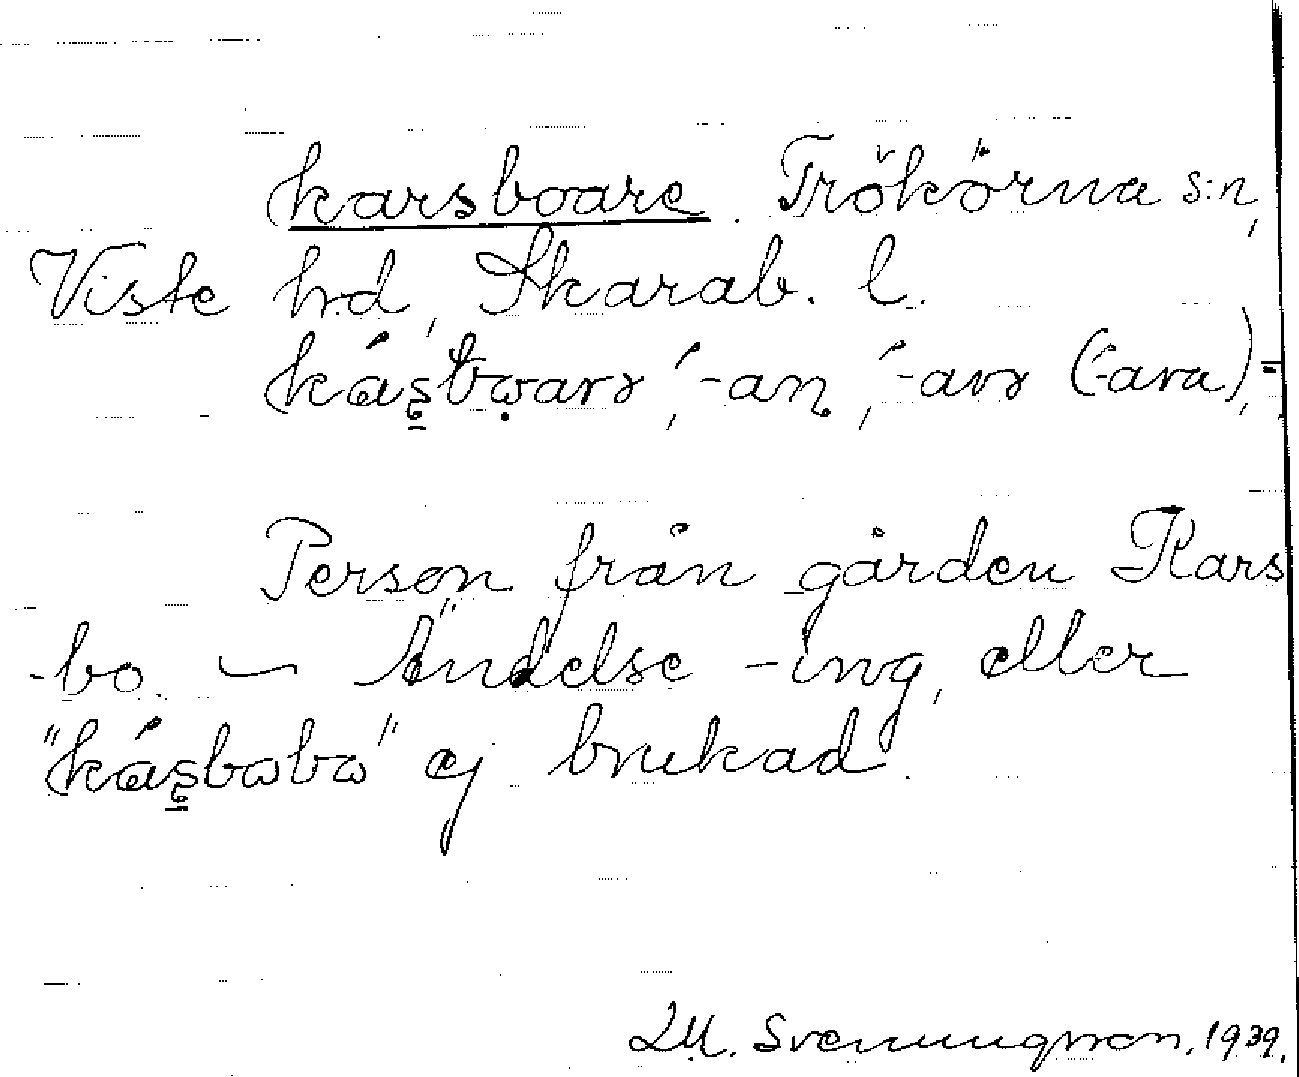 karsboare. Trökörna s:n,
Viste hd, Skarab. l.
kás̱bware, -an, -are (-ara),-
Person från gården Kars
-bo. — Ändelse -ing, eller
"kás̱bobo" ej brukad.
M. Svenungsson. 1939.